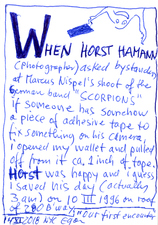 WHEN HORST HAMANN
(photographer) asked bystanders
at Marcus Nispel's shoot of the
German band "SCORPIONS"
if someone has somehow
a piece of adhesive tape to
fix something on his camera,
i opened my wallet and pulled
off from it ca. 1 inch of tape.
HORST was happy and i guess
i saved his day (actually
3 am) on 10 III 1996 on roof
of 280 B'way
"our first encounter
2018 NYC